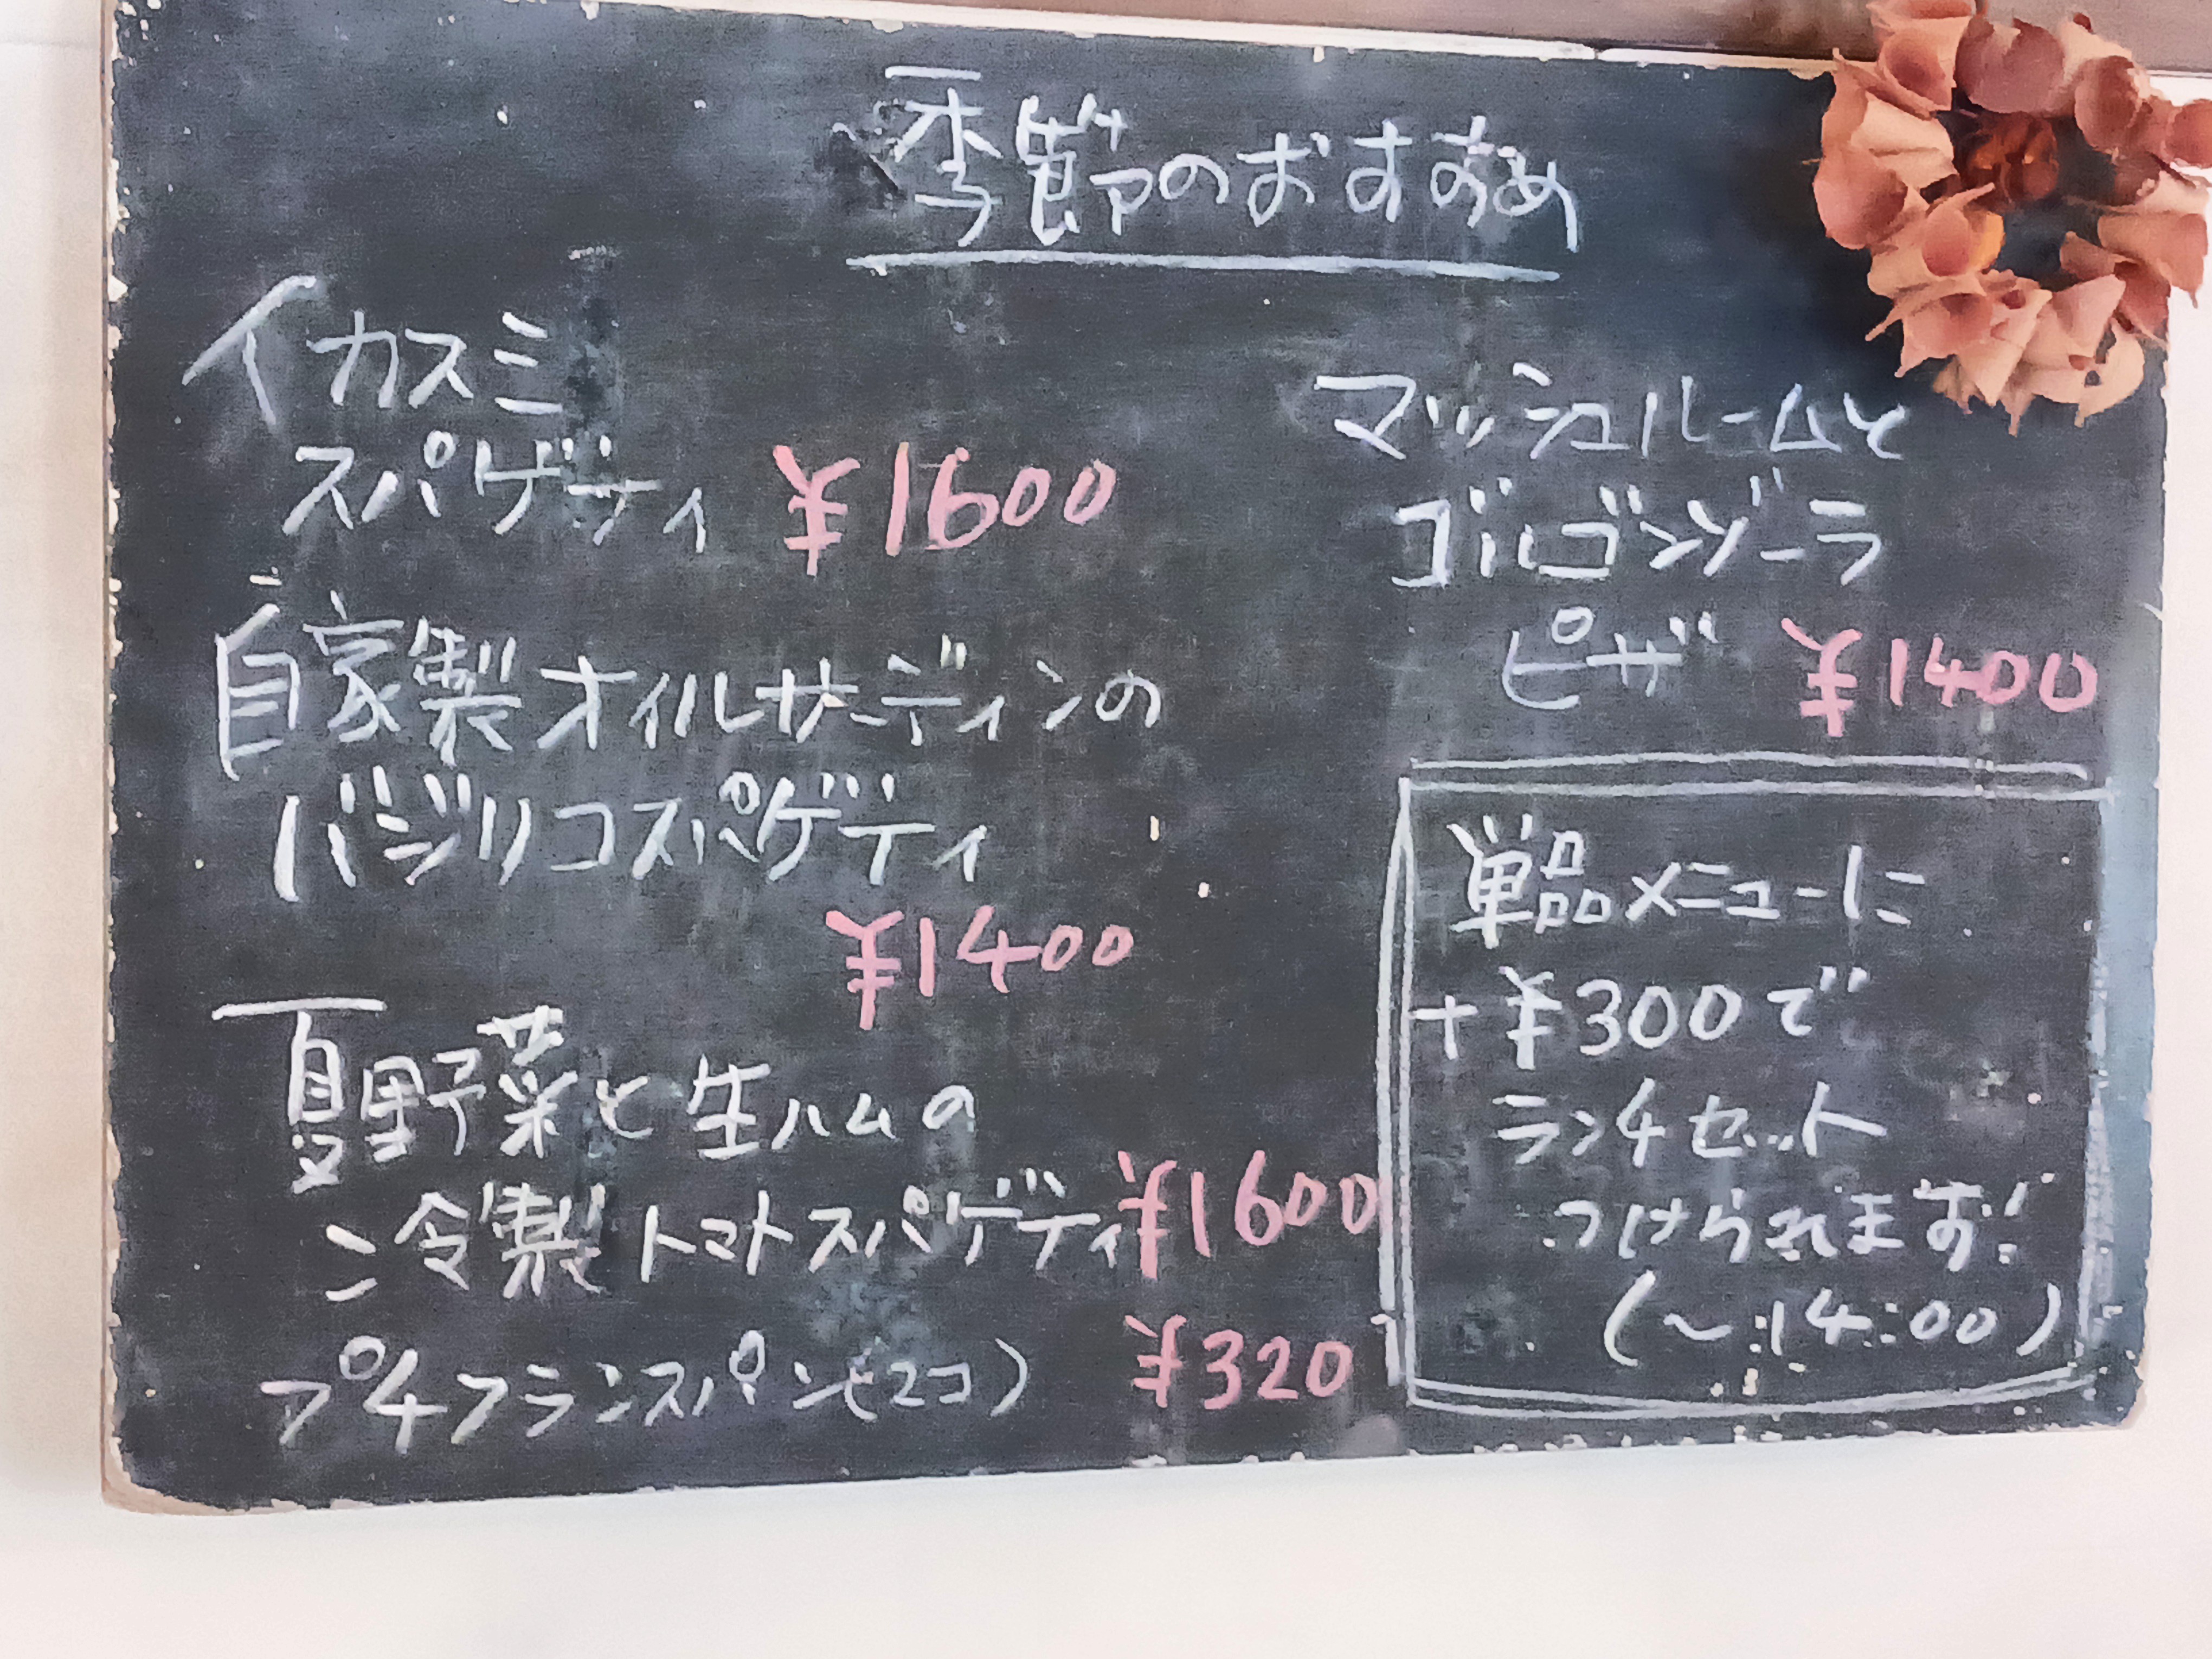 季節のおすすめ
イカスミ
スパゲティ ¥1600
自家製オイルサーディンの
バジリコスパゲディ
¥1400
夏野菜と生ハムの
冷製トマトスパゲティ ¥1600
プチフランスパン(2コ) ¥320
マッシュルームと
ゴルゴンゾーラ
ピザ ¥1400
単品メニューに
+¥300で
ランチセット
つけられます!
(〜14:00)